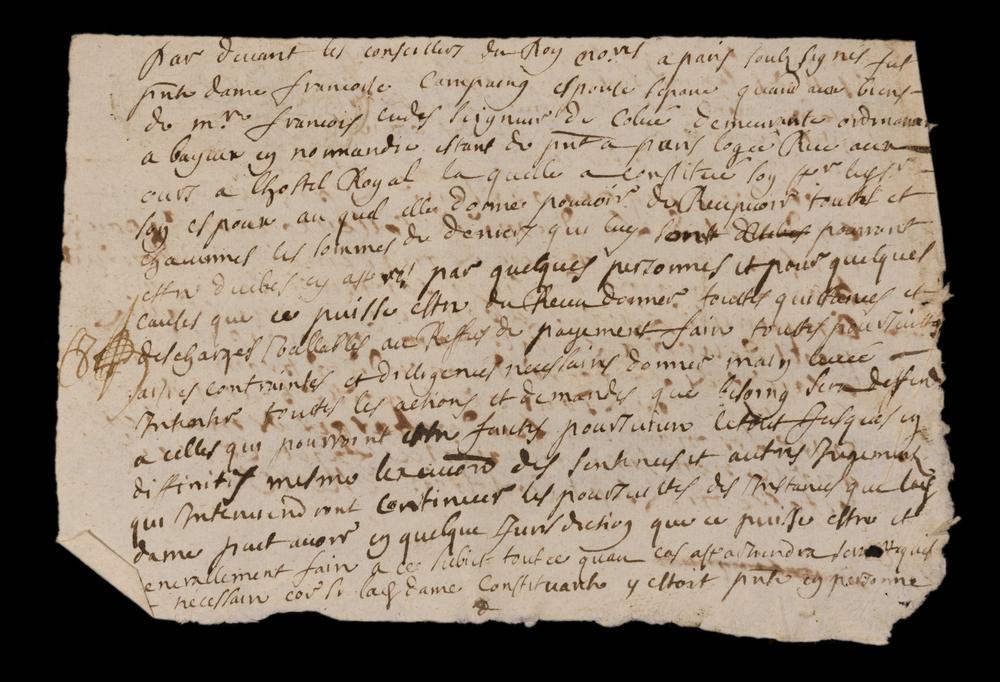 Par devant les conseillers du Roy no.res a paris soubsignés fut
pnte dame francoise Campaing espouse separe quand aux biens
de m.re francois eudes seigneur de Colue demeurante ordinairem
a bayeux en normandie estant de pnt a paris logée Rue aux
ours a lhostel Royal la quelle a constitue son pr ledt sr
son espoux au quel elle donne pouvoir de Recepvoir toutes et
chacunnes les sommes de deniers qui luy sont pourront
estre deubes cy apres par quelques personnes et pour quelques
causes que ce puisse estre du Receu donner touttes quittances et
descharges vallables au Reffus de payement faire touttes poursuittes
saisies contraintes et dilligences necessaires donner main levée
Intenter touttes les actions et demandes que besoing sera deffendre
a celles qui pourroient estre faictes poursuivre le tout Jusques en
diffinitif mesme lexecution des sentences et autres Jugements
qui Interviendront Continuer les poursuittes des Instances que lad
dame peut avoir en quelque Jurisdiction que ce puisse estre et
enerallement faire a ce subiet tout ce quau cas apartiendra sera requis
necessaire coe si lad dame Constituante y estoit pnte en personne